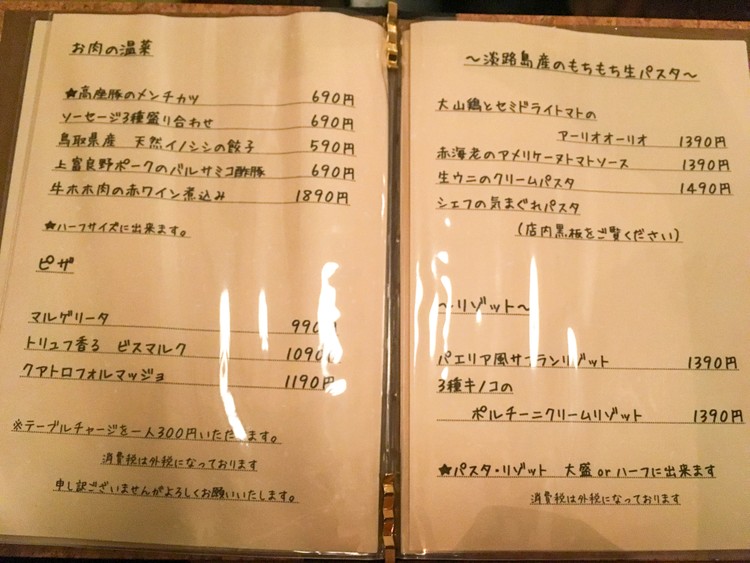 お肉の温菜
★高座豚のメンチカツ 690円
ソーセージ3種盛り合わせ 690円
鳥取県産 天然イノシシの餃子 590円
上富良野ポークのバルサミコ酢豚 690円
牛ホホ肉の赤ワイン煮込み 1890円
★ハーフサイズに出来ます。
ピザ
マルゲリータ 990円
トリュフ香る ビスマルク 1090円
クアトロフォルマッジョ 1190円
※テーブルチャージを一人300円いただきます。
消費税は外税になっております
申し訳ございませんがよろしくお願いいたします。
～淡路島産のもちもち生パスタ～
大山鶏とセミドライトマトの
アーリオオーリオ 1390円
赤海老のアメリケーヌトマトソース 1390円
生ウニのクリームパスタ 1490円
シェフの気まぐれパスタ
(店内黒板をご覧ください)
～リゾット～
パエリア風サフランリゾット 1390円
3種キノコの
ポルチーニクリームリゾット 1390円
★パスタ・リゾット 大盛orハーフに出来ます
消費税は外税になっております